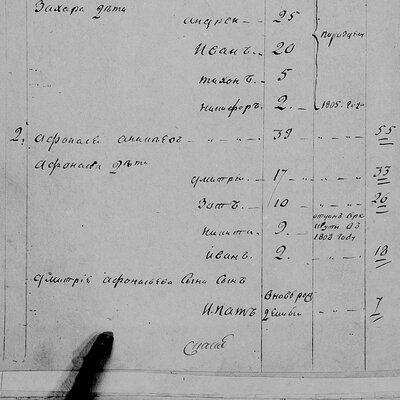 Захара дѣти
андрей - 25
Иванъ - 20
тихонъ - 5
никифоръ - 2 1805 году
2. афонасей ананьевъ - 39 - 55
афонасья дѣти
дмитрий - 17 - 33
Зотъ - 10 - 26
никита - 9 1808 году
иванъ - 2 - 18
дмитрия афонасьева сына сынъ
Ипатъ 7